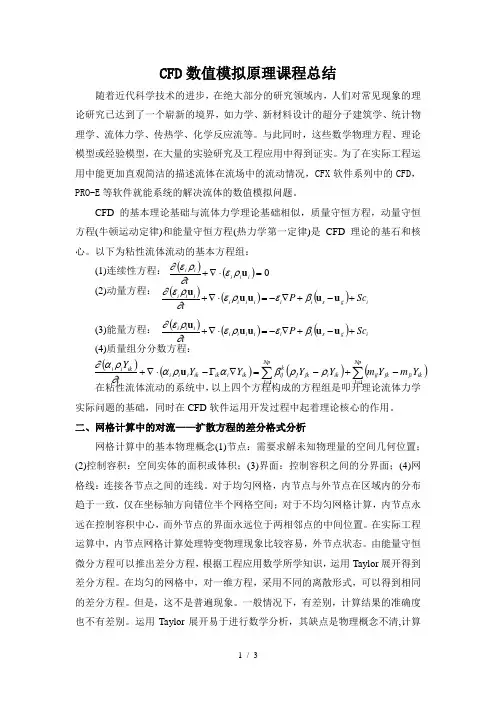 CFD数值模拟原理课程总结
随着近代科学技术的进步，在绝大部分的研究领域内，人们对常见现象的理
论研究已达到了一个崭新的境界，如力学、新材料设计的超分子建筑学、统计物
理学、流体力学、传热学、化学反应流等。与此同时，这些数学物理方程、理论
模型或经验模型，在大量的实验研究及工程应用中得到证实。为了在实际工程运
用中能更加直观简洁的描述流体在流场中的流动情况，CFX 软件系列中的CFD，
PRO-E等软件就能系统的解决流体的数值模拟问题。
CFD 的基本理论基础与流体力学理论基础相似，质量守恒方程，动量守恒
方程(牛顿运动定律)和能量守恒方程(热力学第一定律)是 CFD 理论的基石和核
心。以下为粘性流体流动的基本方程组：
(1)连续性方程：∂(ε_i ρ_i)/∂t + ∇·(ε_i ρ_i u_i) = 0
(2)动量方程：∂(ε_i ρ_i u_i)/∂t + ∇·(ε_i ρ_i u_i u_i) = −ε_i∇P + β_i(u_s − u_g) + Sc_i
(3)能量方程：∂(ε_i ρ_i u_i)/∂t + ∇·(ε_i ρ_i u_i u_i) = −ε_i∇P + β_i(u_s − u_g) + Sc_i
(4)质量组分分数方程：
∂(α_i ρ_i Y_ik)/∂t + ∇·(α_i ρ_i u_i Y_ik − Γ_ik α_i ∇Y_ik) = Σ β_ij^k (ρ_j Y_jk − ρ_i Y_ik) + Σ (m_ij Y_jk − m_ji Y_ik)
在粘性流体流动的系统中，以上四个方程构成的方程组是叩开理论流体力学
实际问题的基础，同时在 CFD 软件运用开发过程中起着理论核心的作用。
二、网格计算中的对流——扩散方程的差分格式分析
网格计算中的基本物理概念(1)节点：需要求解未知物理量的空间几何位置；
(2)控制容积：空间实体的面积或体积；(3)界面：控制容积之间的分界面；(4)网
格线：连接各节点之间的连线。对于均匀网格，内节点与外节点在区域内的分布
趋于一致，仅在坐标轴方向错位半个网格空间；对于不均匀网格计算，内节点永
远在控制容积中心，而外节点的界面永远位于两相邻点的中间位置。在实际工程
运算中，内节点网格计算处理特变物理现象比较容易，外节点状态。由能量守恒
微分方程可以推出差分方程，根据工程应用数学所学知识，运用Taylor展开得到
差分方程。在均匀的网格中，对一维方程，采用不同的离散形式，可以得到相同
的差分方程。但是，这不是普遍现象。一般情况下，有差别，计算结果的准确度
也不有差别。运用Taylor 展开易于进行数学分析，其缺点是物理概念不清,计算
1 / 3